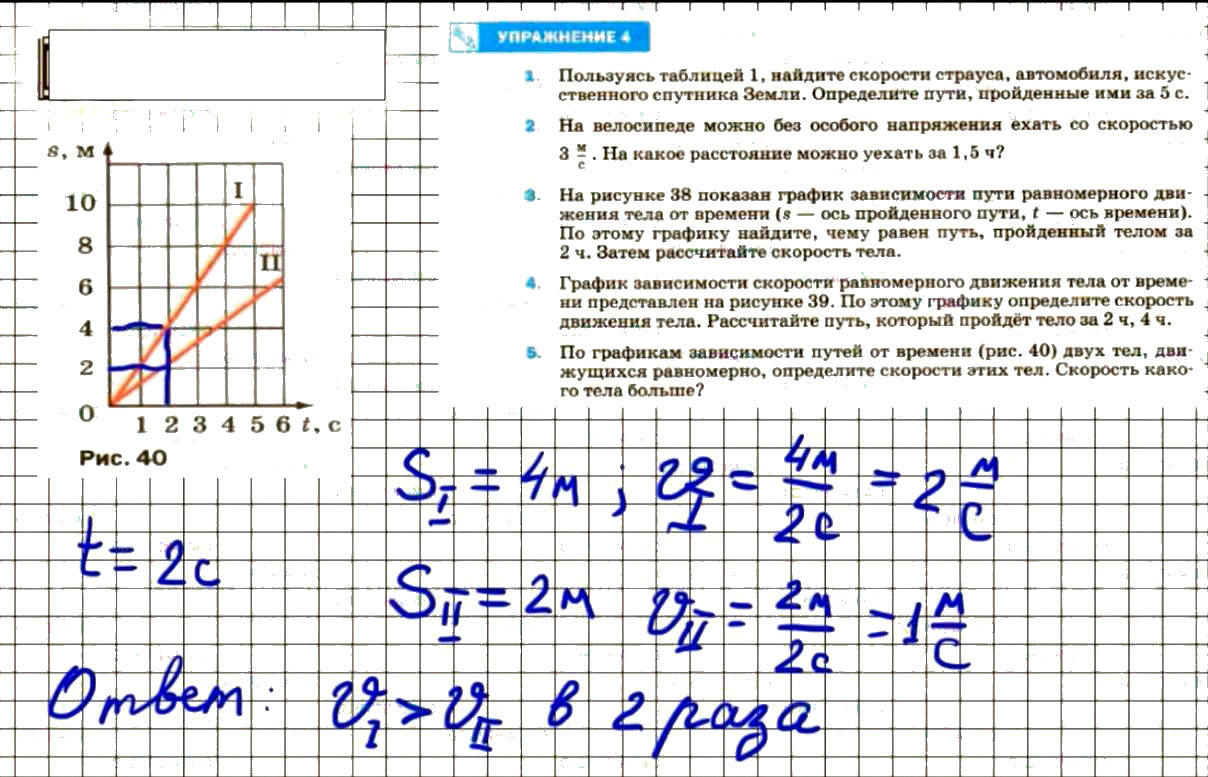 УПРАЖНЕНИЕ 4
1. Пользуясь таблицей 1, найдите скорости страуса, автомобиля, искус-
ственного спутника Земли. Определите пути, пройденные ими за 5 с.
2 На велосипеде можно без особого напряжения ехать со скоростью
3 м/с . На какое расстояние можно уехать за 1,5 ч?
3. На рисунке 38 показан график зависимости пути равномерного дви-
жения тела от времени (s — ось пройденного пути, t — ось времени).
По этому графику найдите, чему равен путь, пройденный телом за
2 ч. Затем рассчитайте скорость тела.
4. График зависимости скорости равномерного движения тела от време-
ни представлен на рисунке 39. По этому графику определите скорость
движения тела. Рассчитайте путь, который пройдёт тело за 2 ч, 4 ч.
5. По графикам зависимости путей от времени (рис. 40) двух тел, дви-
жущихся равномерно, определите скорости этих тел. Скорость како-
го тела больше?
s, м
I
10
8
II
6
4
2
0
1 2 3 4 5 6 t, с
Рис. 40
S_I = 4м ; υ_I = 4м/2с = 2 м/с
t = 2с
S_II = 2м υ_II = 2м/2с = 1 м/с
Ответ: υ_I > υ_II в 2 раза